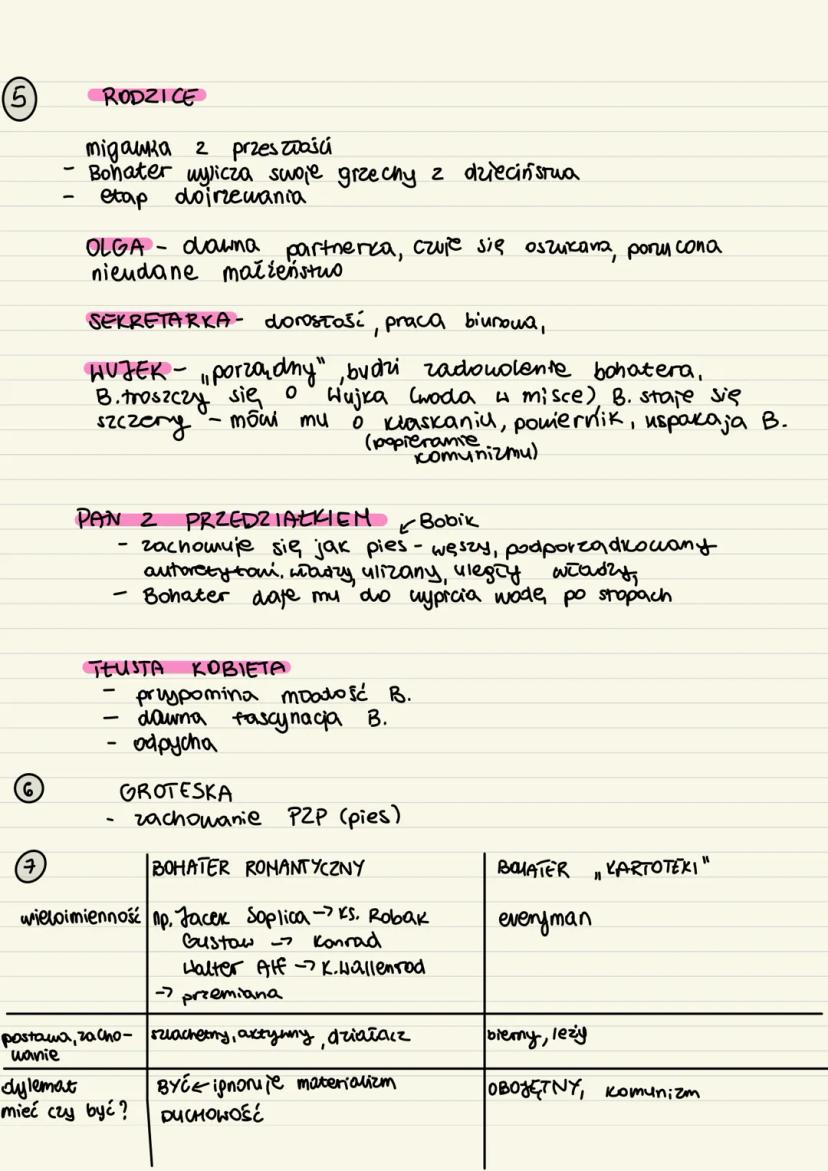 5 RODZICE
migawka z przeszłości
- Bohater wylicza swoje grzechy z dzieciństwa
- etap dojrzewania
OLGA - dawna partnerka, czuje się oszukana, porzucona
nieudane małżeństwo
SEKRETARKA - dorosłość, praca biurowa,
WUJEK - „porządny”, budzi zadowolenie bohatera,
B. troszczy się o Wujka (woda w misce) B. staje się
szczery - mówi mu o klaskaniu, powiernik, uspakaja B.
(popieranie
komunizmu)
PAN Z PRZEDZIAŁKIEM ↙ Bobik
- zachowuje się jak pies - węszy, podporządkowany
autorytetowi, władzy, ulizany, uległy władzy,
- Bohater daje mu do wypicia wodę po stopach
TŁUSTA KOBIETA
- przypomina młodość B.
- dawna fascynacja B.
- odpycha
6 GROTESKA
- zachowanie PZP (pies)
7 BOHATER ROMANTYCZNY BOHATER „KARTOTEKI”
wieloimienność np. Jacek Soplica → Ks. Robak everyman
Gustaw → Konrad
Walter Alf → K. Wallenrod
→ przemiana
postawa, zacho- szlachetny, aktywny, działacz bierny, leży
wanie
dylemat BYĆ ← ignoruje materializm OBOJĘTNY, komunizm
mieć czy być? DUCHOWOŚĆ